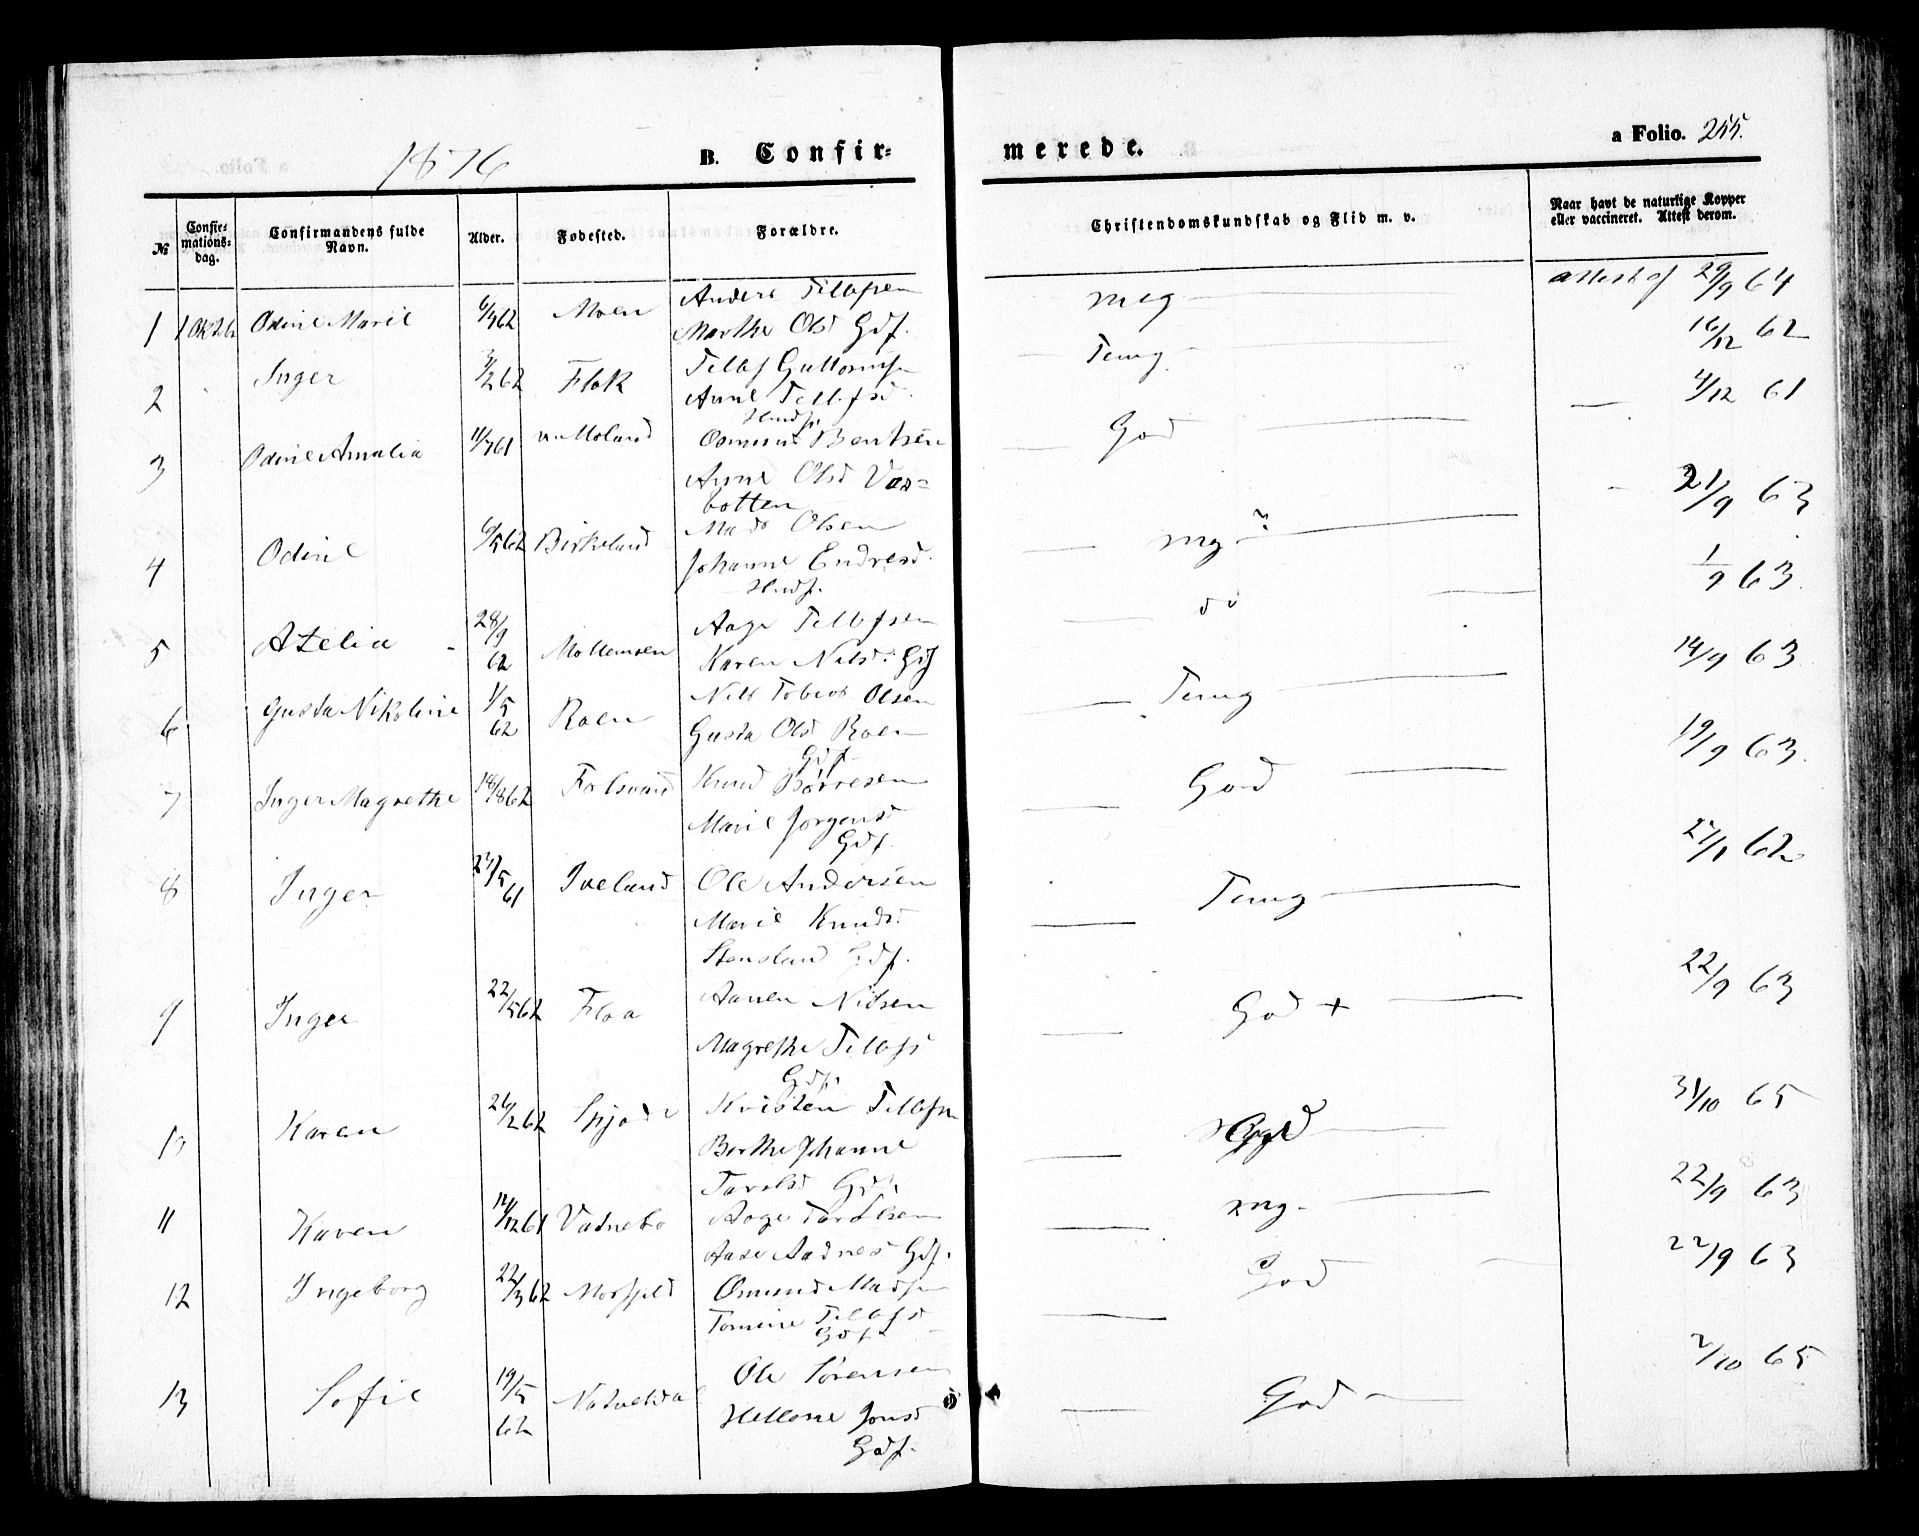 1876
B. Confir-
merede.
a Folio. 255.
№
Confir-
mations-
dag.
Confirmandens fulde
Navn.
Alder.
Fødested.
Forældre.
Christendomskundskab og Flid m. v.
Naar havt de naturlige Kopper
eller vaccineret. Attest derom.
1 1 Okt 76 Odine Marie 6/9 62 Moen Anders Tellefsen
Marthe Olsd Gdf.
meg attest af 29/9 64
2 Inger 3/2 62 Flak Tellef Guttormsen
Anne Tellefsd
Husf.
Temg 16/12 62
3 Odine Amalia 11/7 61 Moland Osmund Bentsen
Anne Olsd Vas-
botten
God 4/12 61
4 Odine 6/5 62 Birkeland Mads Olsen
Johanne Endresd.
Husf.
mg 21/9 63
5 Azelia 28/9
62 Mollemoen Aage Tellefsen
Karen Nilsd. Gdf
do 1/9 63.
6 Gusta Nikoline 1/5
62 Roen Nils Tobias Olsen
Gusta Olsd Roen
Gdf
Temg 14/9 63
7 Inger Magrethe 18/8 62 Folsvand Knud Børresen
Marie Jørgensd
Gdf.
God 19/9 63.
8 Inger 27/5
61 Iveland Ole Andersen
Marie Knudsd.
Stensland Gdf.
Temg 62
9 Inger 22/5 62 Floa Aanen Nilsen
Magrethe Tellefsd
Gdf.
God + 22/9 63
10 Karen 26/2 62 Kristen Tellefsen
Berthe Johanne
Tarolsd Gdf.
31/10 65
11 Karen 14/12 61 Vatnebo Aage Tarolsen
Aase Aadnesd Gdf.
mg. 22/9 63
12 Ingeborg 22/3 62 Mosfjeld Osmund Madsen
Tomine Tellefsd
Gdf
God 22/9 63
13 Sofie 19/5
62 Natveldal Ole Sørensen
Hellene Jonsd
Gdf.
God 2/10 65